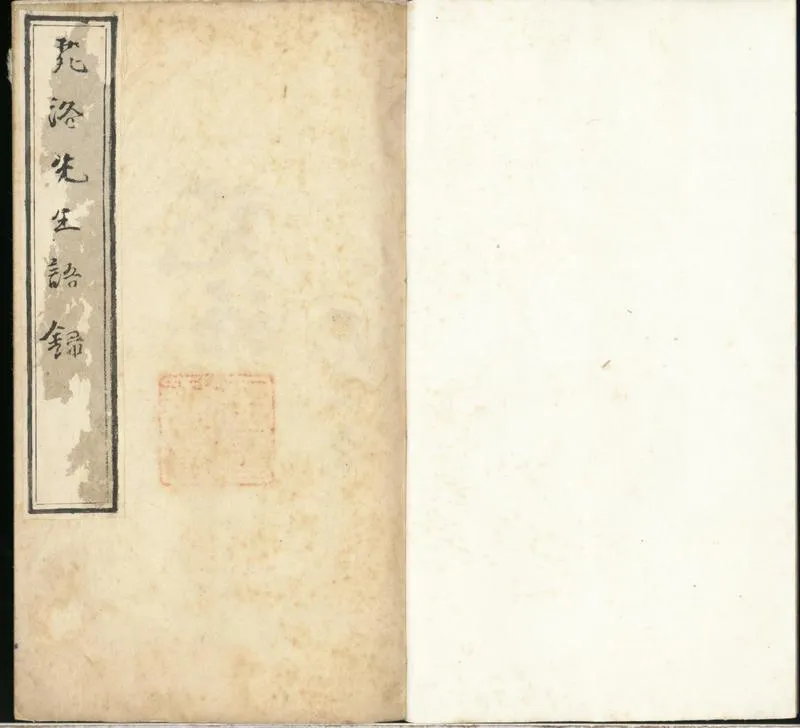 苑洛先生語錄